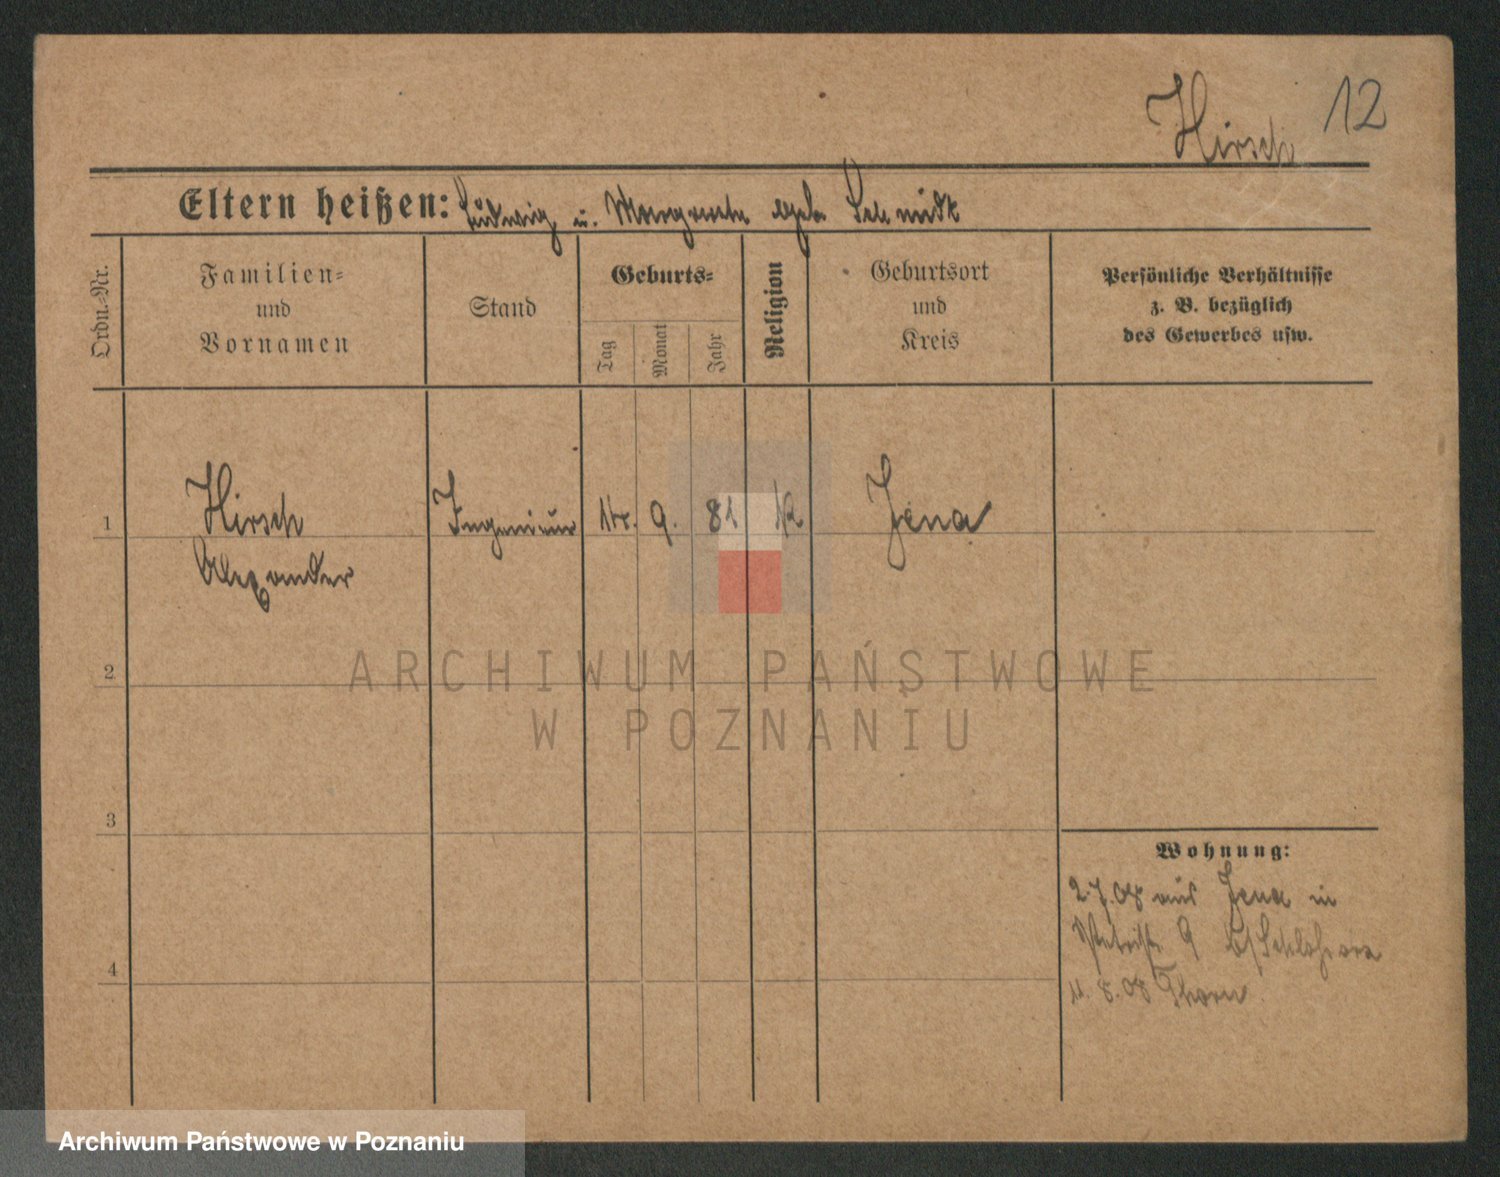 Hirsch 12
Eltern heißen: Ludwig u. Margarete geb. Schmidt
Ordn.-Nr.
Familien-
und
Vornamen
Stand
Geburts-
Tag
Monat
Jahr
Religion
Geburtsort
und
Kreis
Persönliche Verhältnisse
z. B. bezüglich
des Gewerbes usw.
1 Hirsch Ingenieur 9. 81 Jena
Alexander
2
3
4
Wohnung:
2.7.08 aus Jena in
9
8.08 Thorn
ARCHIWUM PAŃSTWOWE
W POZNANIU
Archiwum Państwowe w Poznaniu